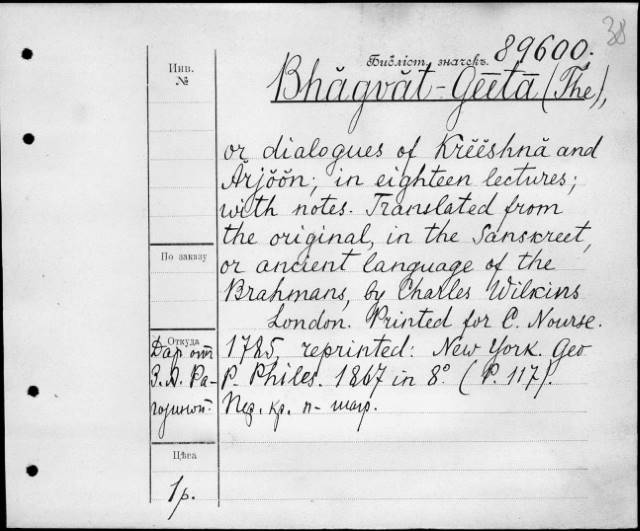 38
Библіот. значекъ. 89600.
Инв.
№
Bhăgvăt-Gēētā (The),
or dialogues of Krĕĕshnă and
Ărjŏŏn; in eighteen lectures;
with notes. Translated from
the original, in the Sanskreet,
По заказу
or ancient language of the
Brahmans, by Charles Wilkins
London. Printed for C. Nourse.
Откуда
Дар отъ
З. А. Ра-
гозиной.
1785, reprinted: New York. Geo
P. Philes. 1867 in 8º (P. 117).
кр. п-
Цѣна
1р.